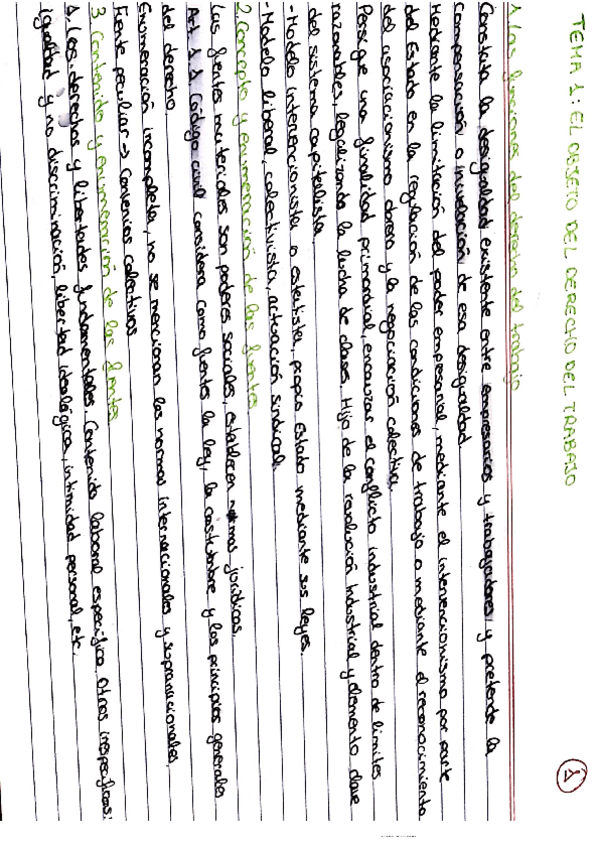 TEMA 1: EL OBJETO DEL DERECHO DEL TRABAJO
1
1. Las funciones del derecho del trabajo
Constata la desigualdad existente entre empresarios y trabajadores y pretende la
compensación o nivelación de esa desigualdad
Mediante la limitación del poder empresarial, mediante el intervencionismo por parte
del Estado en la regulación de las condiciones de trabajo o mediante el reconocimiento
del asociacionismo obrero y la negociación colectiva.
Persigue una finalidad primordial, encauzar el conflicto industrial dentro de límites
razonables, legalizando la lucha de clases. Hijo de la revolución industrial y elemento clave
del sistema capitalista.
- Modelo intervencionista o estatista, propio Estado mediante sus leyes.
- Modelo liberal, colectivista, actuación sindical.
2. Concepto y enumeración de las fuentes
Las fuentes materiales son poderes sociales, establecen normas jurídicas.
Art 1.1 Código civil considera como fuentes la ley, la costumbre y los principios generales
del derecho.
Enumeración incompleta, no se mencionan las normas internacionales y supranacionales.
Fuente peculiar -> Convenios colectivos
3. Contenido y enumeración de las fuentes
1. Los derechos y libertades fundamentales. Contenido laboral específico. Otros inespecíficos:
igualdad y no discriminación, libertad ideológica, intimidad personal, etc.